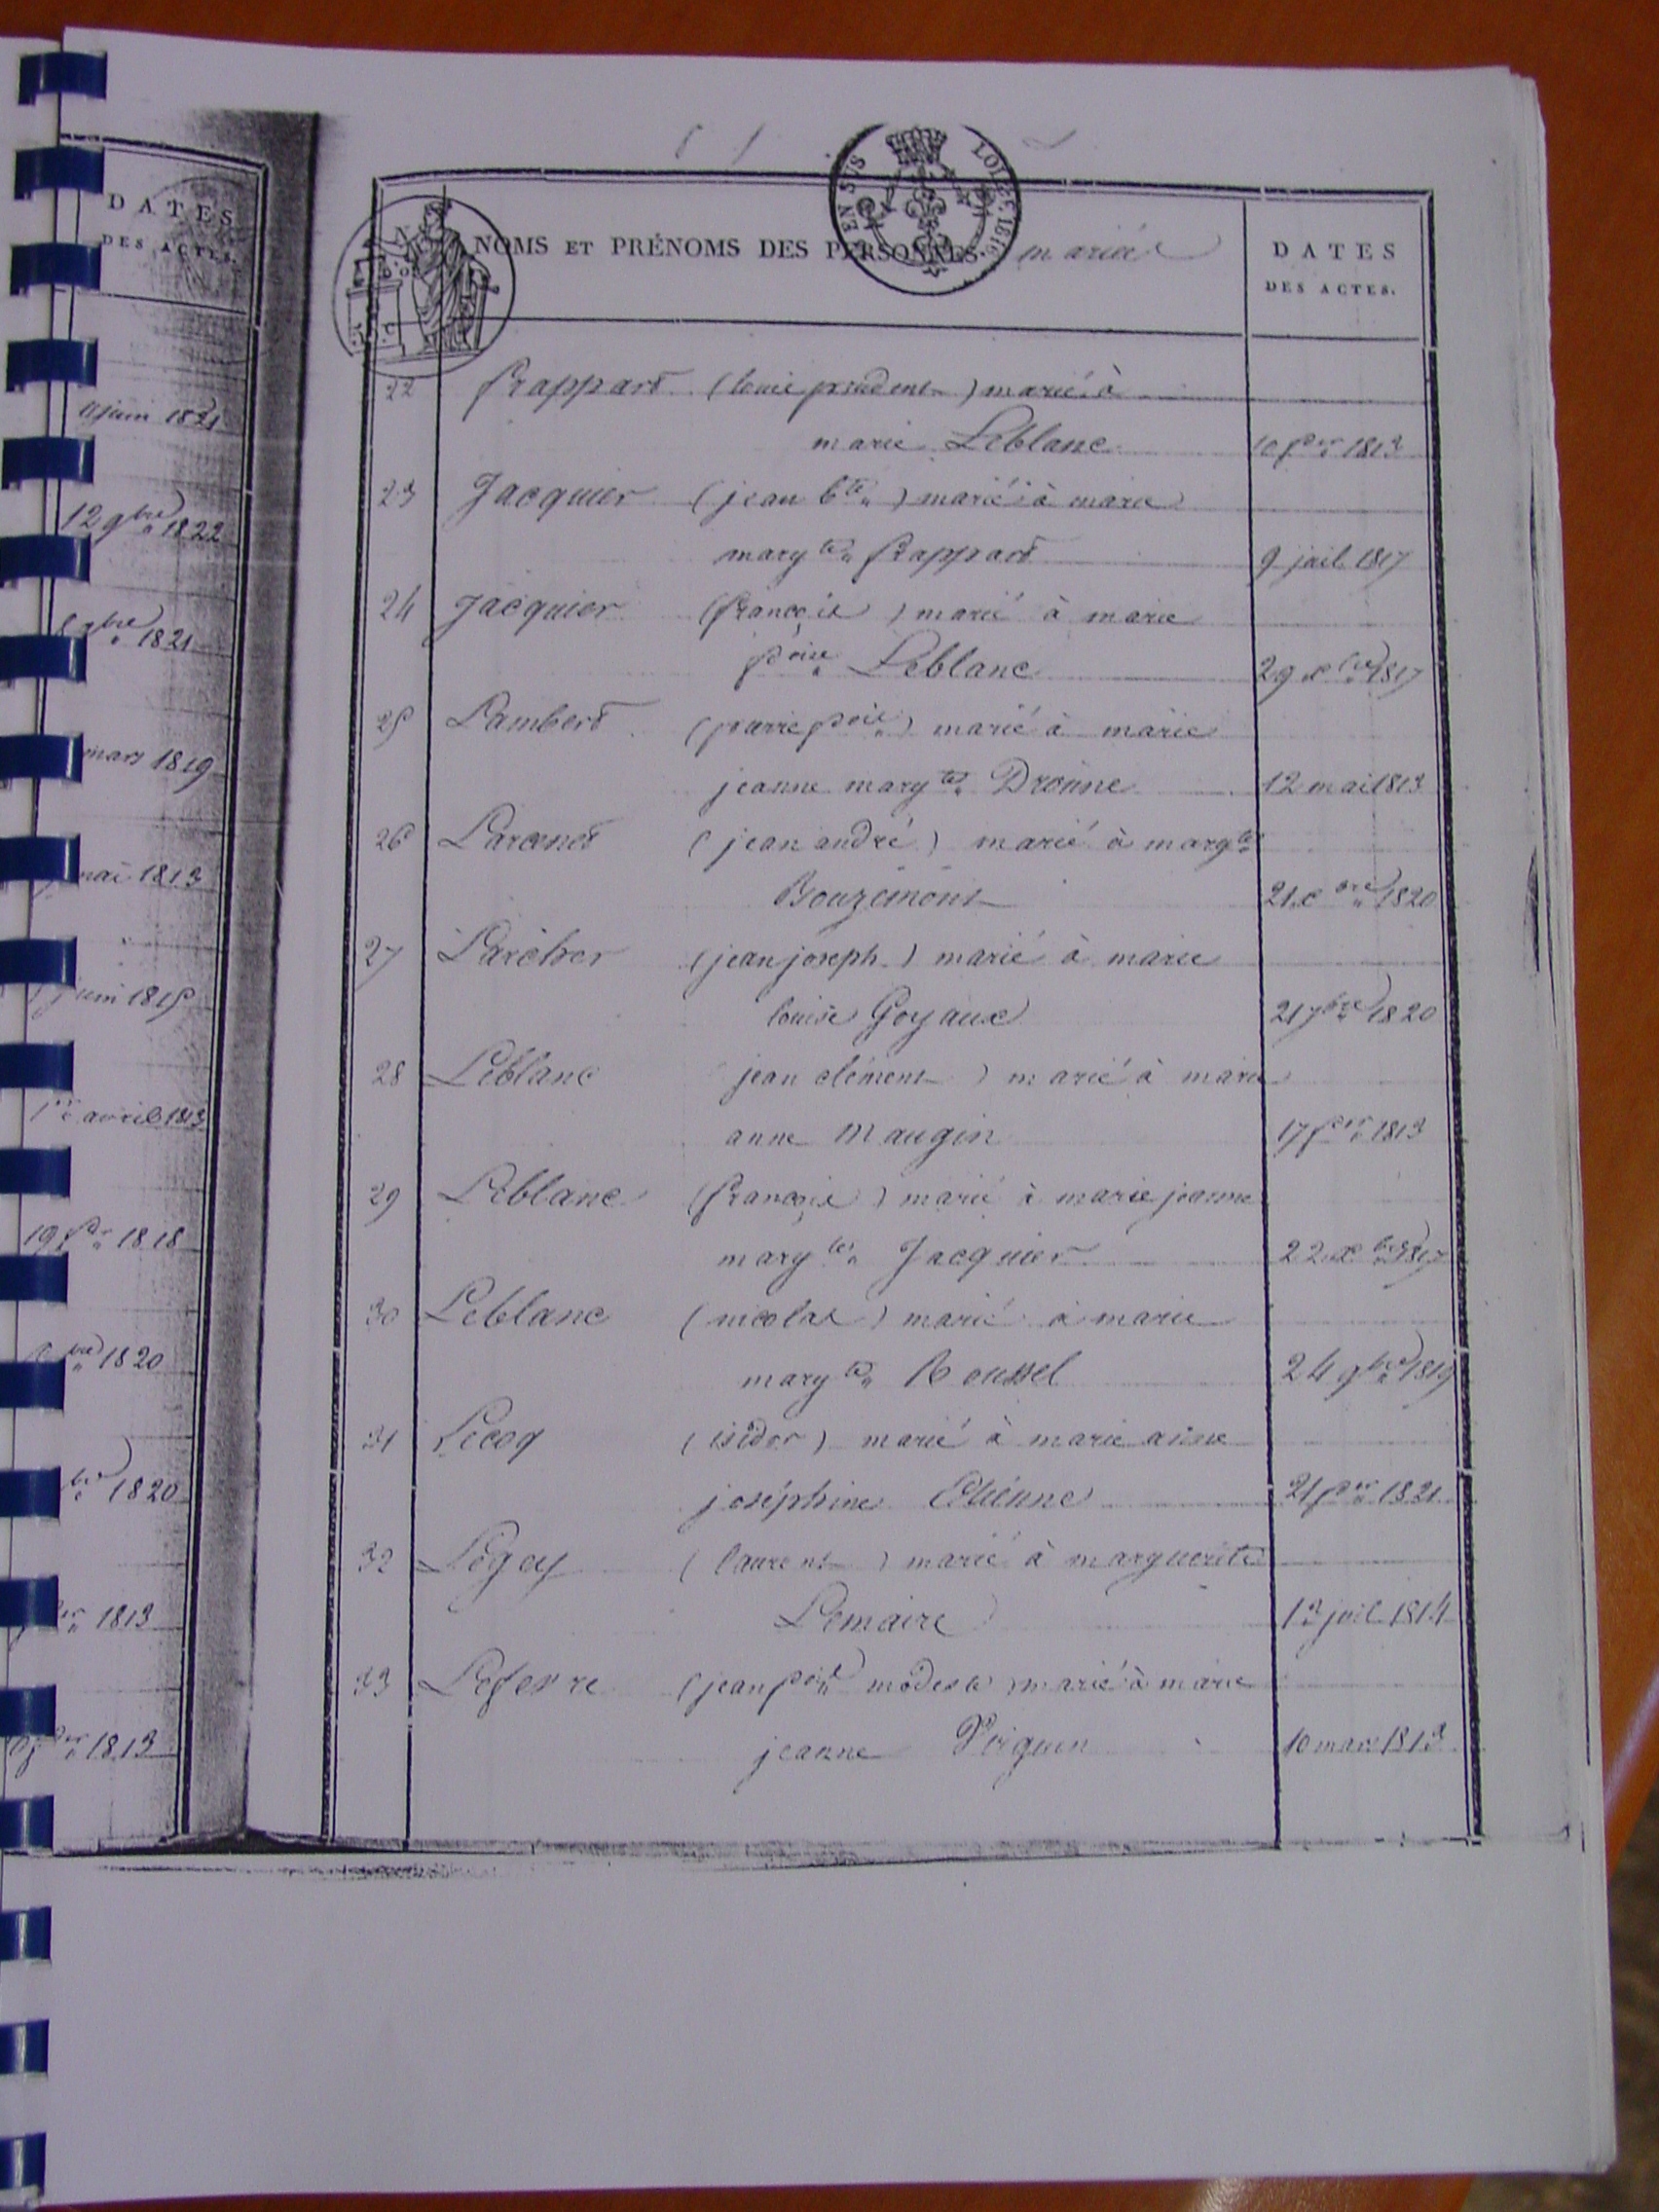 DATES
DES ACTES.
11 juin 1821
12 9bre 1822
bre 1821
mars 1819
mai 1813
juin 1815
1er avril 1813
19 fer 1818
bre 1820
bre 1820
er 1813
er 1813
EN SUS LOI 1816
NOMS ET PRÉNOMS DES PERSONNES. mariées
DATES
DES ACTES.
22 frappart (louis prudent) marié à
marie Leblanc 10 fer 1813
23 Jacquier (jean bte) marié à marie
margte frappart 9 juil 1817
24 Jacquier (françois) marié à marie
foise Leblanc 29 xbre 1817
25 Lambert (pierre fois) marié à marie
jeanne margte Drouine 12 mai 1813
26 (jean andré) marié à margte
Bouzemont 21 xbre 1820
27 Larcher (jean joseph) marié à marie
louise Goyaux 21 7bre 1820
28 Leblanc jean clément) marié à marie
anne Maugin 17 fer 1813
29 Leblanc (françois) marié à marie jeanne
margte Jacquier 22 xbre 1817
30 Leblanc (nicolas) marié à marie
margte Roussel 24 9bre 1819
31 Lecoq (isidor) marié à marie anne
joséphine Etienne 21 fer 1821
32 Legay (laurent) marié à marguerite
Lemaire 12 juil 1814
33 Lefevre (jean fois modeste) marié à marie
jeanne 10 mars 1813